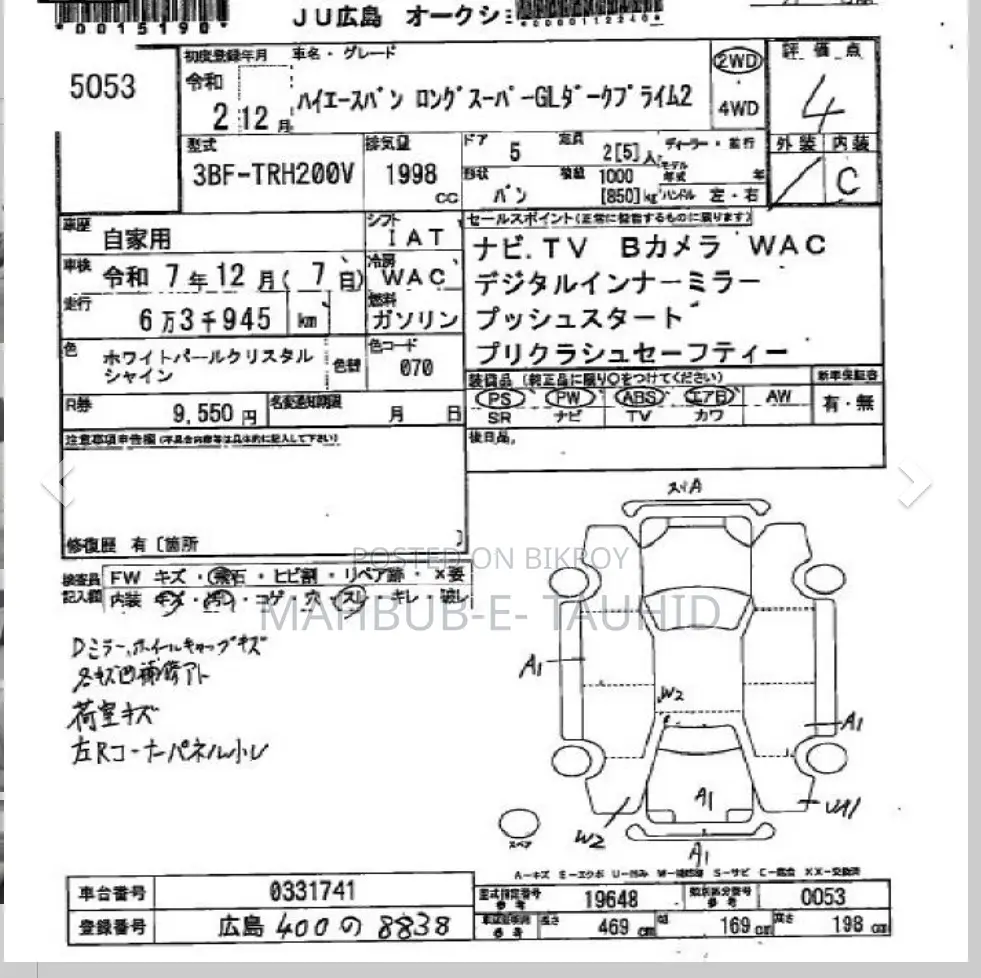 *0015190*
*0000112240*
JU広島 オークシ
5053
初度登録年月
車名・グレード
令和
2 12 月
ハイエースバン ロングスーパーGLダークプライム2
2WD
・
4WD
評価点
4
外装 内装
C
型式
3BF-TRH200V
排気量
1998
cc
ドア
5
定員
2[5]人
ディーラー・並行
形状
バン
積載
1000
[850]kg
モデル
年式
年
ハンドル 左・右
車歴
自家用
シフト
IAT
セールスポイント(正常に稼働するものに限ります)
ナビ.TV Bカメラ WAC
デジタルインナーミラー
プッシュスタート
プリクラシュセーフティー
車検
令和 7年12月(7日)
冷房
WAC
走行
6万3千945 km
燃料
ガソリン
色
ホワイトパールクリスタル
シャイン
色替
色コード
070
装備品(純正品に限り○をつけてください)
新車保証書
PS PW ABS エアB AW
有・無
SR ナビ TV カワ
R券
9,550円
名変通知期限
月 日
後日品
注意事項申告欄(不具合内容等は具体的に記入して下さい)
修復歴 有〔箇所 〕
検査員
記入欄
FW キズ・飛石・ヒビ割・リペア跡・X要
内装 キズ・汚れ・コゲ・穴・スレ・キレ・破レ
POSTED ON BIKROY
MAHBUB-E- TAUHID
Dミラー、ホイールキャップキズ
各キズ凹補修アト
荷室キズ
左Rコーナーパネル小レ
スリA
A1
W2
A1
A1
W2
A1
スペア
A-キズ E-エクボ U-凹み W-補修跡 S-サビ C-腐食 XX-交換済
車台番号
0331741
型式指定番号
参考
19648
類別区分番号
参考
0053
登録番号
広島 400 の 8838
参考
長さ
469 cm
幅
169 cm
高さ
198 cm